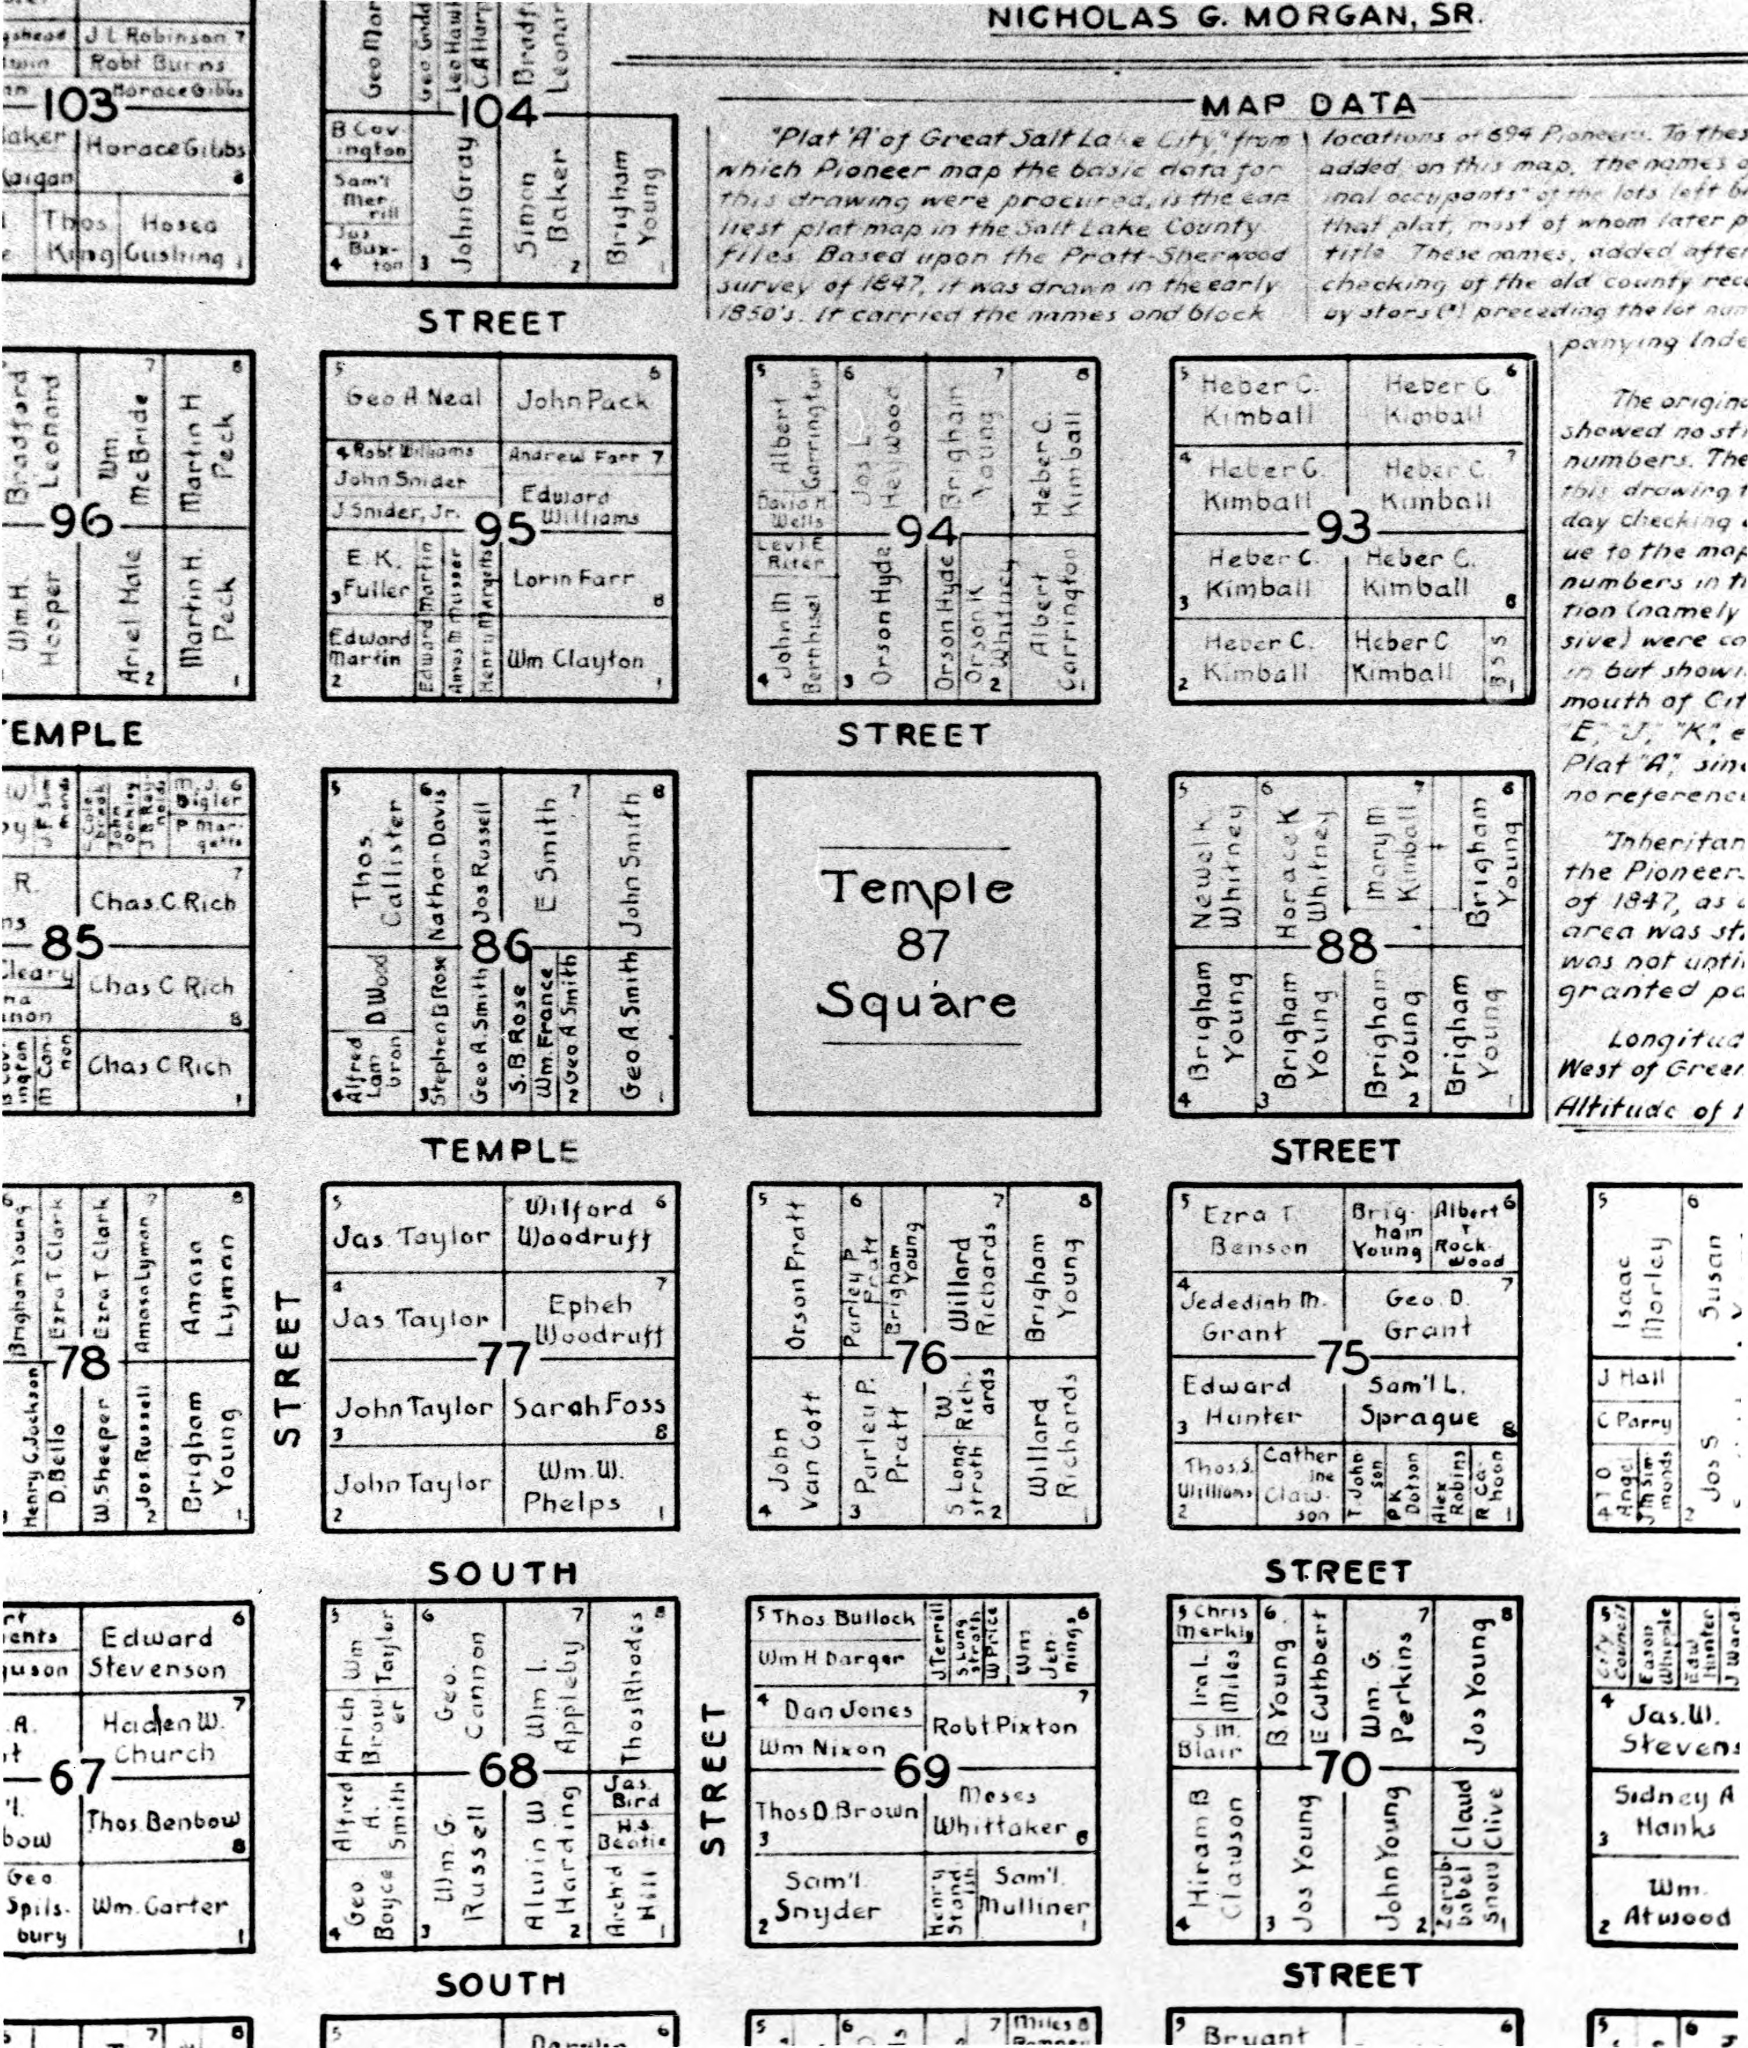 NICHOLAS G. MORGAN, SR.
MAP DATA
"Plat 'A' of Great Salt Lake City," from
which Pioneer map the basic data for
this drawing were procured, is the ear
liest plat map in the Salt Lake County
files. Based upon the Pratt-Sherwood
survey of 1847, it was drawn in the early
1850's. It carried the names and block
locations of 694 Pioneers. To thes
added, on this map, the names o
inal occupants" of the lots left b
that plat, most of whom later p
title. These names, added after
checking of the old county rec
by stars (*) preceding the lot num
panying Inde
The origina
showed no st
numbers. The
this drawing
day checking
ue to the map
numbers in t
tion (namely
sive) were co
in but showi
mouth of Cit
"E," "J," "K," e
Plat "A", sinc
no reference
"Inheritan
the Pioneer
of 1847, as
area was st
was not unti
granted pa
Longitud
West of Green
Altitude of
J L Robinson 7
Robt Burns
Horace Gibbs
103
Horace Gibbs
8
Thos
King
Hosea
Cushing
1
Geo Mor
Geo Godd
Leo Hawk
C A Harp
Bradf
Leonar
104
B Cov
ington
Sam'l
Mer
rill
Jas
Bux-
ton
4
3
John Gray
Simon
Baker
2
Brigham
Young
1
STREET
Bradford
Leonard
7
Wm.
McBride
8
Martin H
Peck
96
Wm H.
Hooper
Ariel Hale
2
Martin H.
Peck
1
5
Geo A Neal
6
John Pack
4 Robt Williams
John Snider
J Snider, Jr.
Andrew Farr 7
Edward
Williams
95
E. K.
3 Fuller
Edward Martin
Amos M Musser
Henry Margetts
Lorin Farr
8
Edward
Martin
2
Wm Clayton
1
5
Albert
Carrington
David H.
Wells
6
Jos L.
Heywood
7
Brigham
Young
8
Heber C.
Kimball
94
Levi E
Riter
4
John M
Bernhisel
3
Orson Hyde
Orson Hyde
Orson K
Whitney
2
Albert
Carrington
5
Heber C.
Kimball
6
Heber C
Kimball
4
Heber C.
Kimball
7
Heber C.
Kimball
93
Heber C.
Kimball
3
Heber C.
Kimball
8
Heber C.
Kimball
2
Heber C
Kimball
B S S
1
TEMPLE
STREET
J F Sim
monds
John
Oakley
J B Rey
nolds
M. J. 6
Bigler
P Mar-
getts
7
Chas. C. Rich
85
Cleary
Chas C Rich
8
M Can-
non
Chas C Rich
1
5
Thos.
Callister
6
Nathan Davis
Jos Russell
7
E Smith
8
John Smith
86
D Wood
4
Alfred
Lam
bron
3
Stephen B Rose
Geo A. Smith
S. B. Rose
Wm. France
2 Geo A Smith
Geo A. Smith
1
Temple
87
Square
5
Newel K
Whitney
6
Horace K
Whitney
7
Mary M
Kimball
8
Brigham
Young
88
4
Brigham
Young
3
Brigham
Young
2
Brigham
Young
1
Brigham
Young
TEMPLE
STREET
6
Brigham Young
Ezra T. Clark
Ezra T. Clark
7
Amasa Lyman
8
Amasa
Lyman
78
Henry C. Jackson
D. Bello
W. Sheeper
2
Jos. Russell
Brigham
Young
1
STREET
5
Jas. Taylor
6
Wilford
Woodruff
4
Jas Taylor
7
Epheh
Woodruff
77
John Taylor
3
Sarah Foss
8
John Taylor
2
Wm. W.
Phelps
1
5
Orson Pratt
6
Parley P
Pratt
Brigham
Young
7
Willard
Richards
8
Brigham
Young
76
4
John
Van Cott
3
Parley P.
Pratt
W
Rich.
ards
S Long-
stroth
2
Willard
Richards
1
5
Ezra T.
Benson
Brig-
ham
Young
Albert 6
T
Rock-
wood
4
Jedediah M.
Grant
7
Geo. D.
Grant
75
Edward
3 Hunter
Sam'l L.
Sprague
8
Thos. S.
Williams
2
Cather
ine
Claw-
son
T John
son
P K
Dotson
Alex
Robins
R Ca-
hoon
1
5
Isaac
Morley
6
Susan
J Hall
C Parry
4
T O
Angel
Jm Sim-
monds
2
Jos S
SOUTH
STREET
6
Edward
Stevenson
7
Haden W.
Church
67
Thos. Benbow
8
Geo.
Spils-
bury
Wm. Carter
1
5
Arich
Brow
er
Wm
Taylor
6
Geo.
Cannon
7
Wm I.
Appleby
8
Thos Rhodes
68
Alfred
H.
Smith
4
Geo
Boyce
3
Wm. G.
Russell
2
Alwin W
Harding
Jas.
Bird
H. S.
Beatie
Arch'd
Hill
1
STREET
5 Thos Bullock
Wm H Darger
J Terrill
S Long
stroth
W Price
6
Wm
Jen-
nings
4
Dan Jones
Wm Nixon
7
Robt Pixton
69
Thos D. Brown
3
Moses
Whittaker
8
Sam'l.
2 Snyder
Henry
Stand-
ish
Sam'l.
Mulliner
1
5 Chris
Merkly
Ira L.
Miles
S. M.
Blair
6
B Young
E Cuthbert
7
Wm. G.
Perkins
8
Jos Young
70
4
Hiram B
Clawson
3
Jos Young
2
John Young
Claud
Clive
Zerub-
babel
Snow
1
5
City
Council
Eason
Whipple
Edw
Hunter
J Ward
4
Jas. W.
Stevens
Sidney A
3 Hanks
Wm.
2 Atwood
SOUTH
STREET
7
8
5
6
5
6
7
Miles 8
Romney
5
Bryant
6
5
6